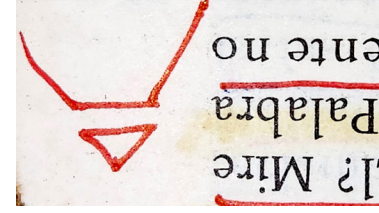 l? Mire
Palabra
ente no